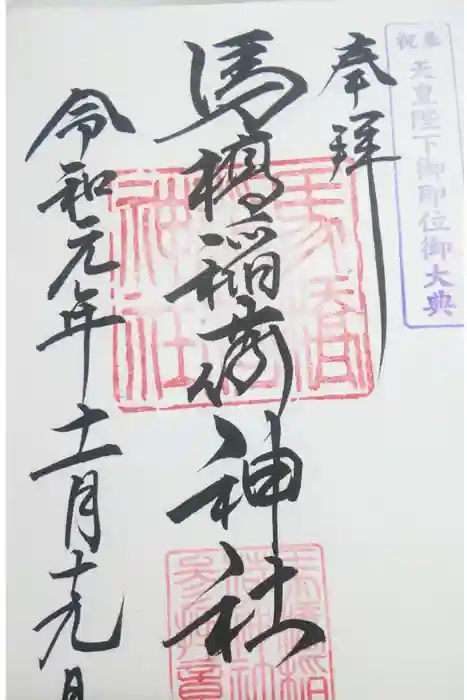 奉祝
天皇陛下御即位御大典
奉拝
馬橋稲荷神社
令和元年十一月十九日